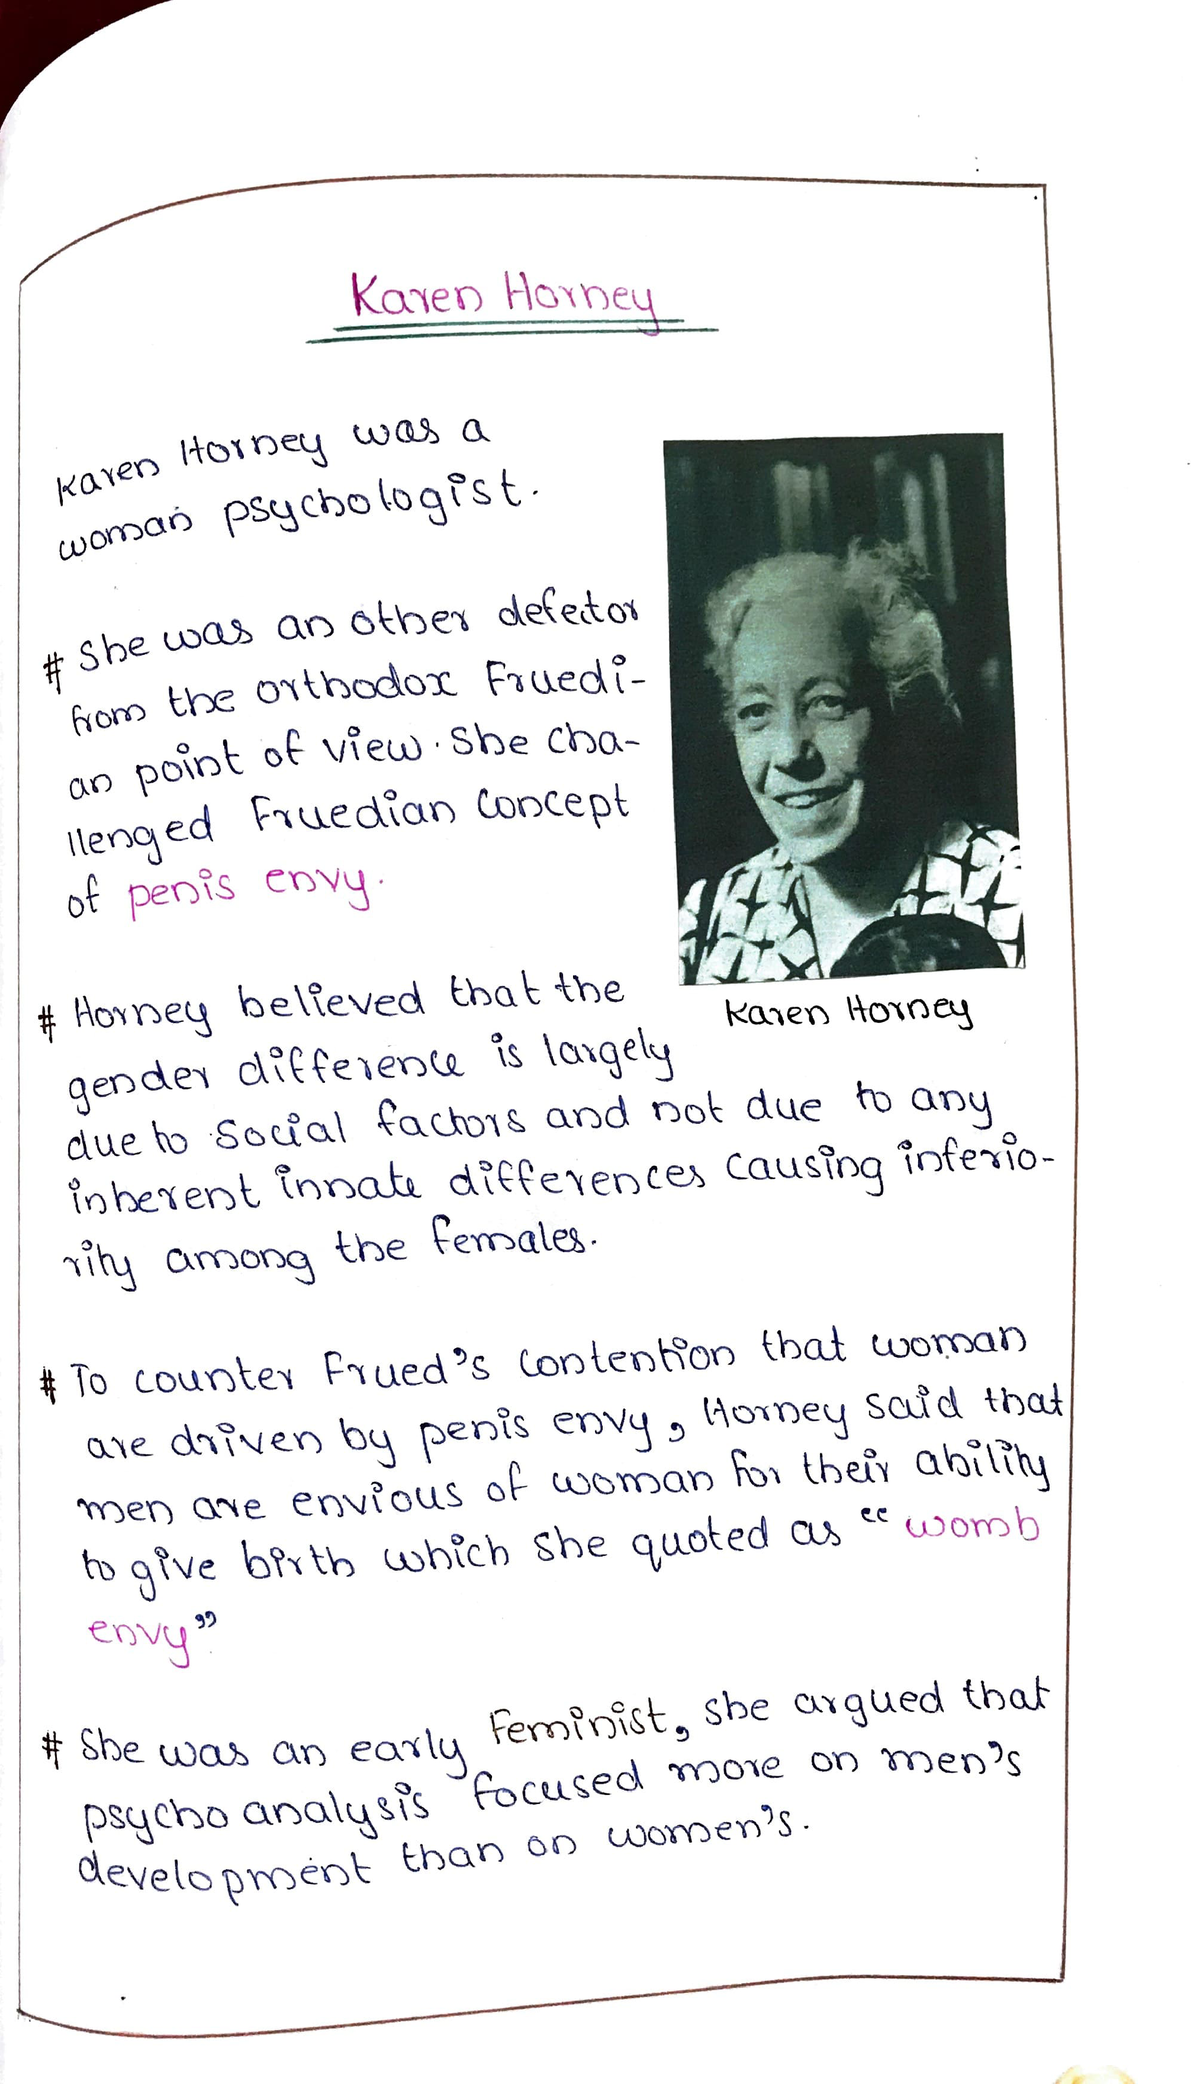 Karen Horney
Karen Horney was a
woman psychologist.
# She was an other defector
from the orthodox Fruedi-
an point of view. She cha-
llenged Fruedian Concept
of penis envy.
Karen Horney
# Horney believed that the
gender difference is largely
due to social factors and not due to any
inherent innate differences causing inferio-
rity among the females.
# To counter Frued's contention that woman
are driven by penis envy, Horney said that
men are envious of woman for their ability
to give birth which she quoted as "womb
envy"
# She was an early Feminist, she argued that
psycho analysis focused more on men's
development than on women's.